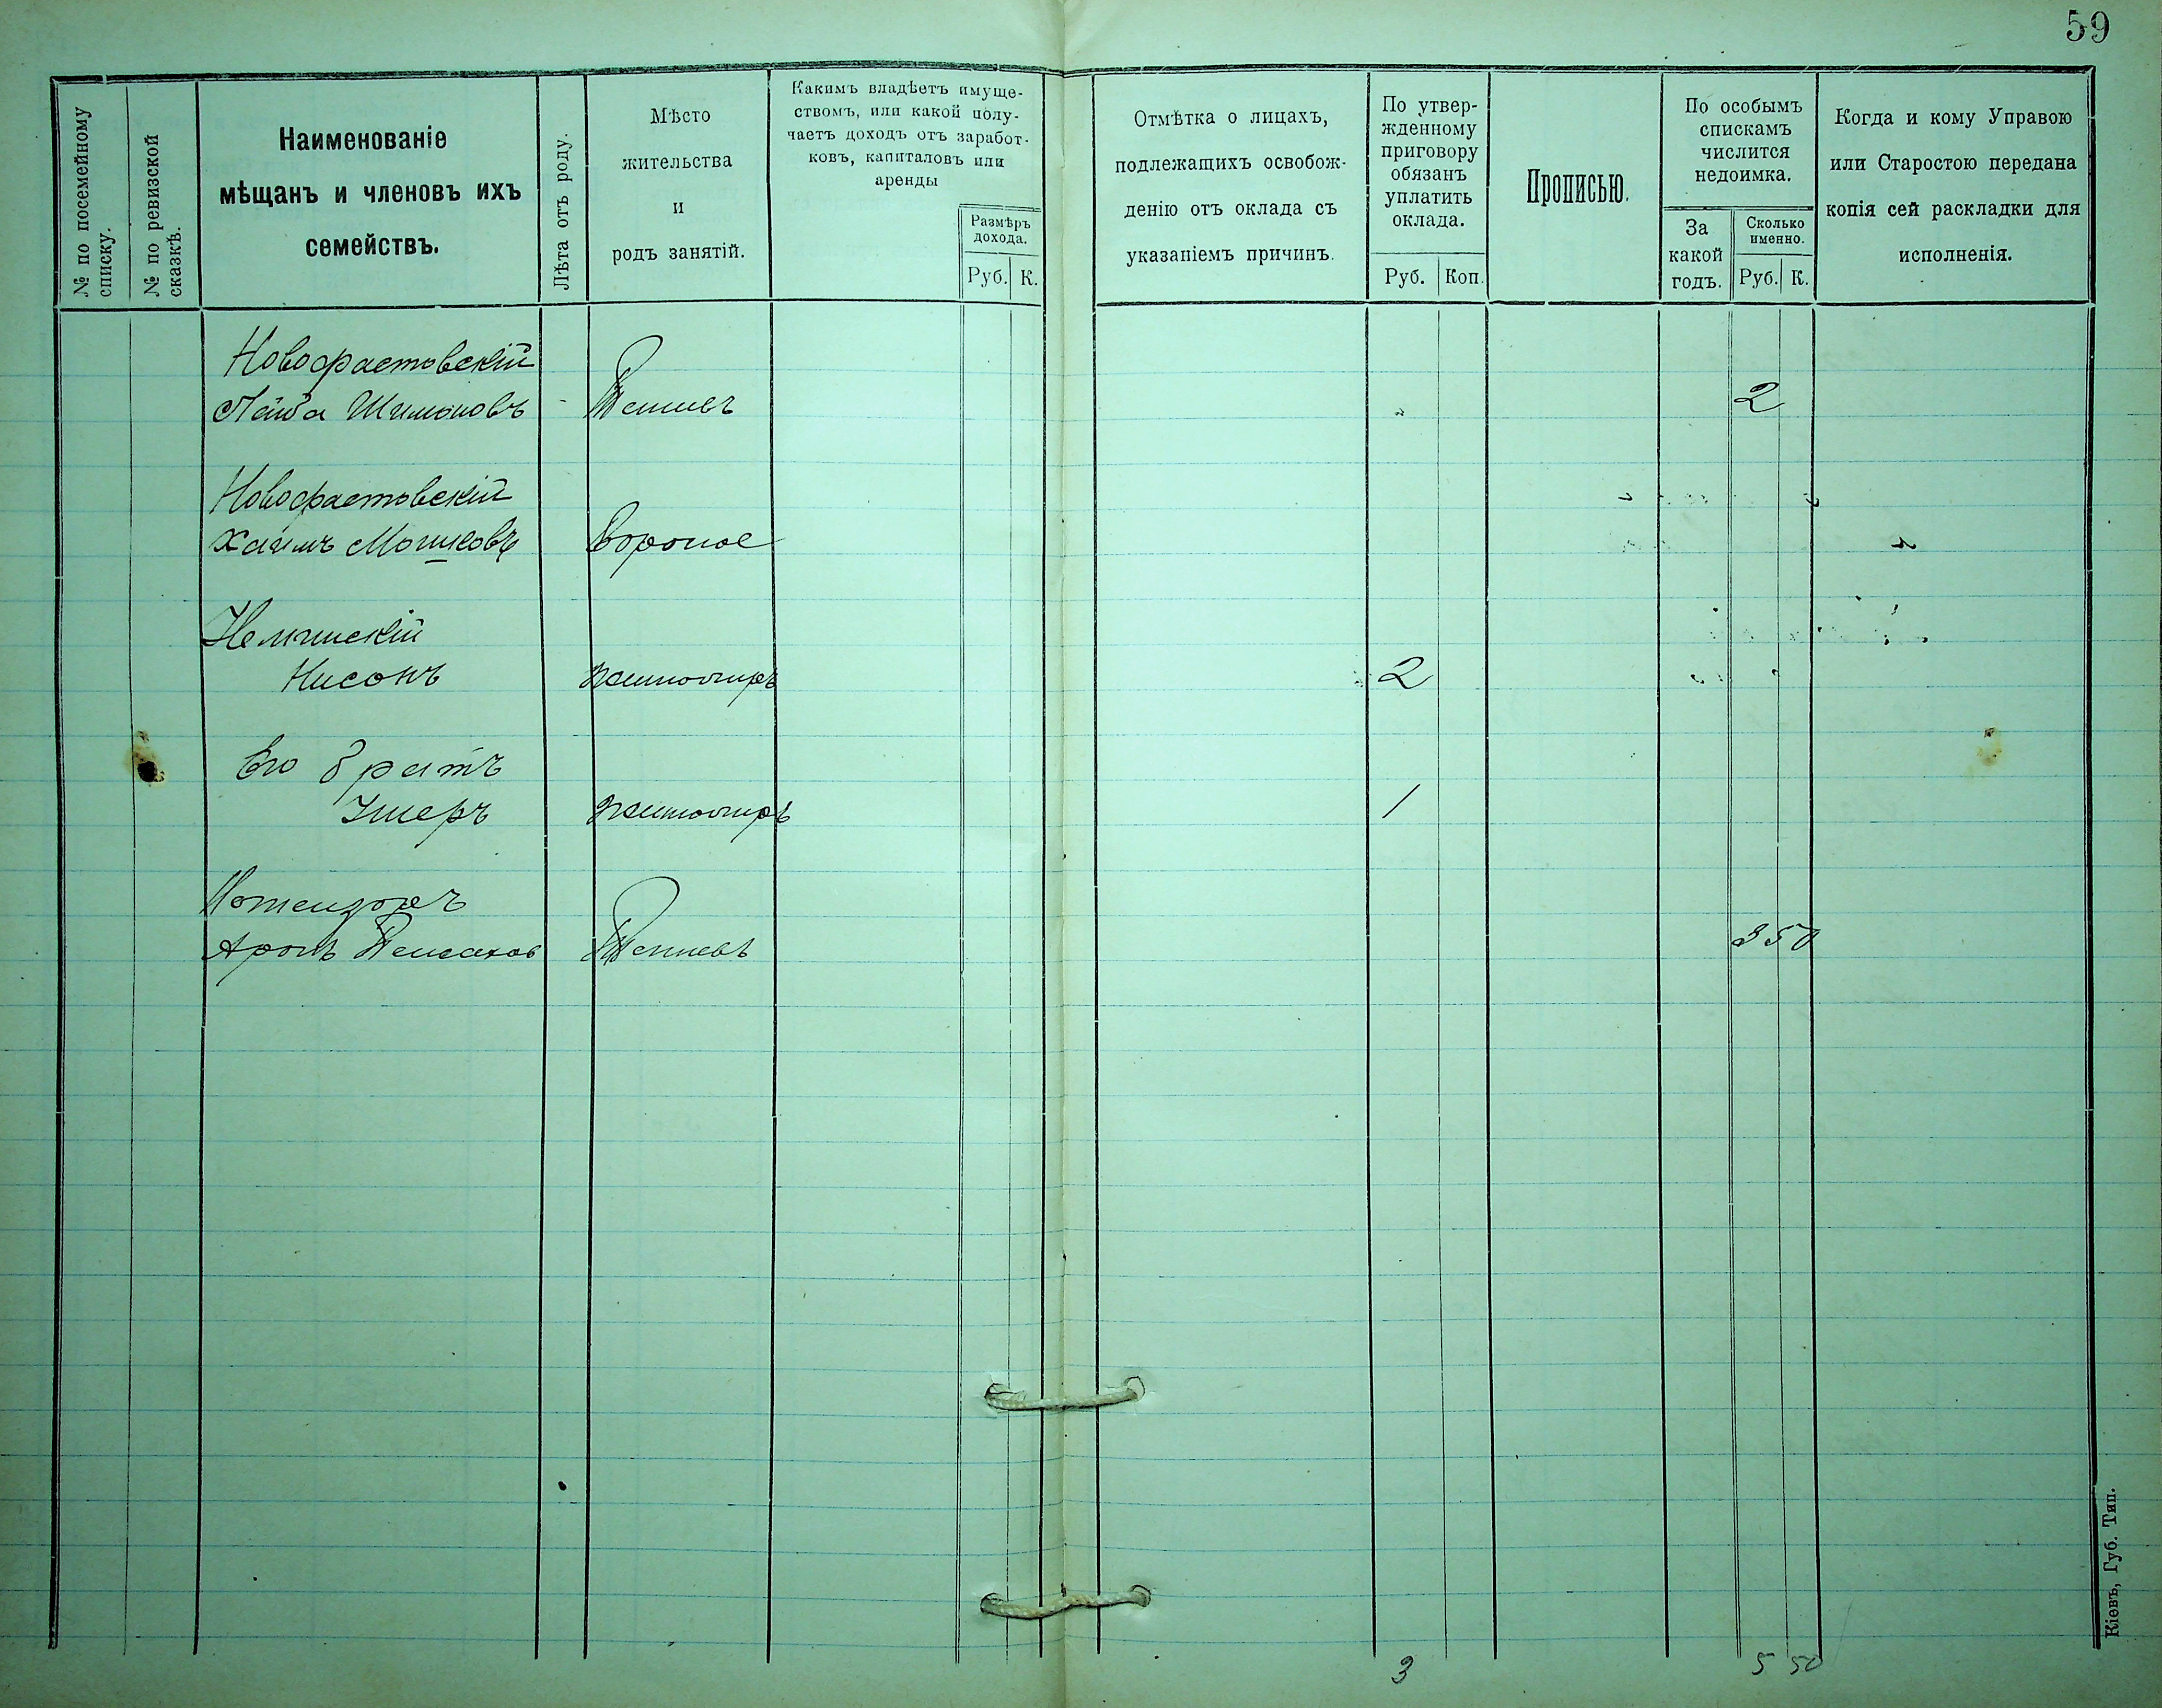 59
№ по посемейному
списку.
№ по ревизской
сказкѣ.
Наименованіе
мѣщанъ и членовъ ихъ
семействъ.
Лѣта отъ роду.
Мѣсто
жительства
и
родъ занятій.
Какимъ владѣетъ имуще-
ствомъ, или какой полу-
чаетъ доходъ отъ заработ-
ковъ, капиталовъ или
аренды
Размѣръ
дохода.
Руб. К.
Отмѣтка о лицахъ,
подлежащихъ освобож-
денію отъ оклада съ
указаніемъ причинъ.
По утвер-
жденному
приговору
обязанъ
уплатить
оклада.
Руб. Коп.
Прописью.
По особымъ
спискамъ
числится
недоимка.
За
какой
годъ.
Сколько
именно.
Руб. К.
Когда и кому Управою
или Старостою передана
копія сей раскладки для
исполненія.
Новофастовскій
Шимоновъ 2
Новофастовскій
Хаимъ Мошковъ Вороное
Нисонъ 2
Его братъ
Ушеръ 1
Аронъ 3 50
3 5 50
Кіевъ, Губ. Тип.